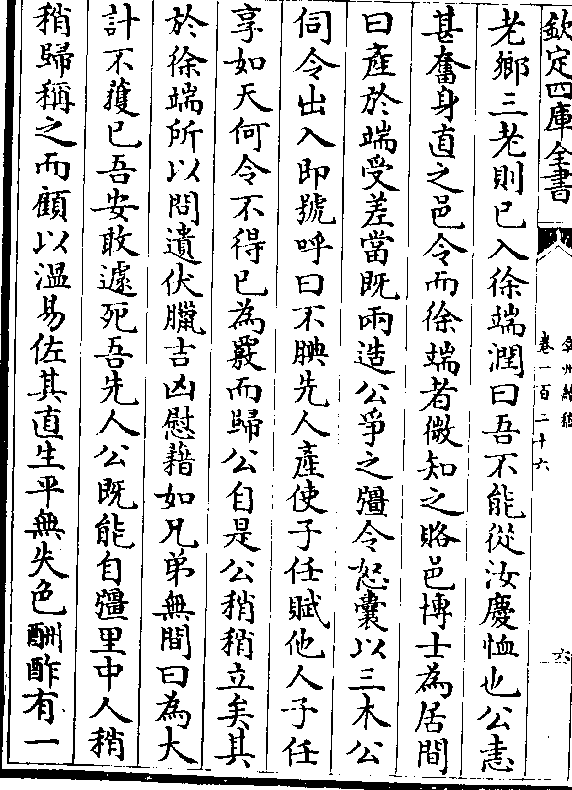 欽定四庫全書
卷一百二十六
六
老鄉三老則已入徐端潤曰吾不能從汝慶恤也公恚
甚奮身直之邑令而徐端者微知之賂邑博士為居間
曰產於端受差當既兩造公爭之彊令怒囊以三木公
伺令出入即號呼曰不腆先人產使子任賦他人子任
享如天何令不得已為覈而歸公自是公稍稍立矣其
於徐端所以問遺伏臘吉凶慰藉如兄弟無間曰為大
計不蒦已吾安敢遽死吾先人公既能自彊里中人稍
稍歸稱之而顧以溫易佐其直生平無失色酬酢有一